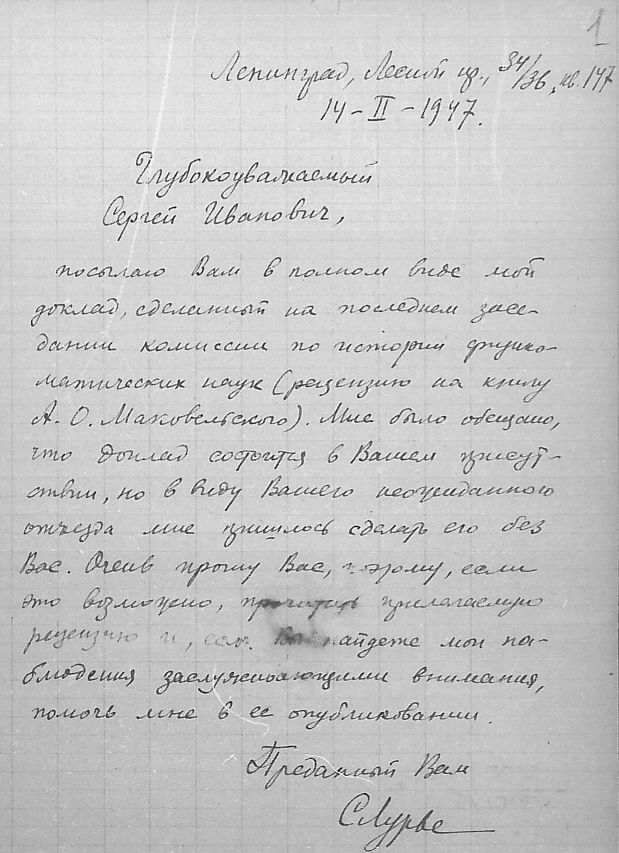 1
Ленинград, Лесной пр., 34/36, кв. 147
14 – II – 1947.
Глубокоуважаемый
Сергей Иванович,
посылаю Вам в полном виде мой
доклад, сделанный на последнем засе-
дании комиссии по истории физико-
матических наук (рецензию на книгу
А. О. Маковельского). Мне было обещано,
что доклад состоится в Вашем присут-
ствии, но в виду Вашего неожиданного
отъезда мне пришлось сделать его без
Вас. Очень прошу Вас, поэтому, если
это возможно, прочитать прилагаемую
рецензию и, если Вы найдете мои на-
блюдения заслуживающими внимания,
помочь мне в ее опубликовании.
Преданный Вам
С. Лурье